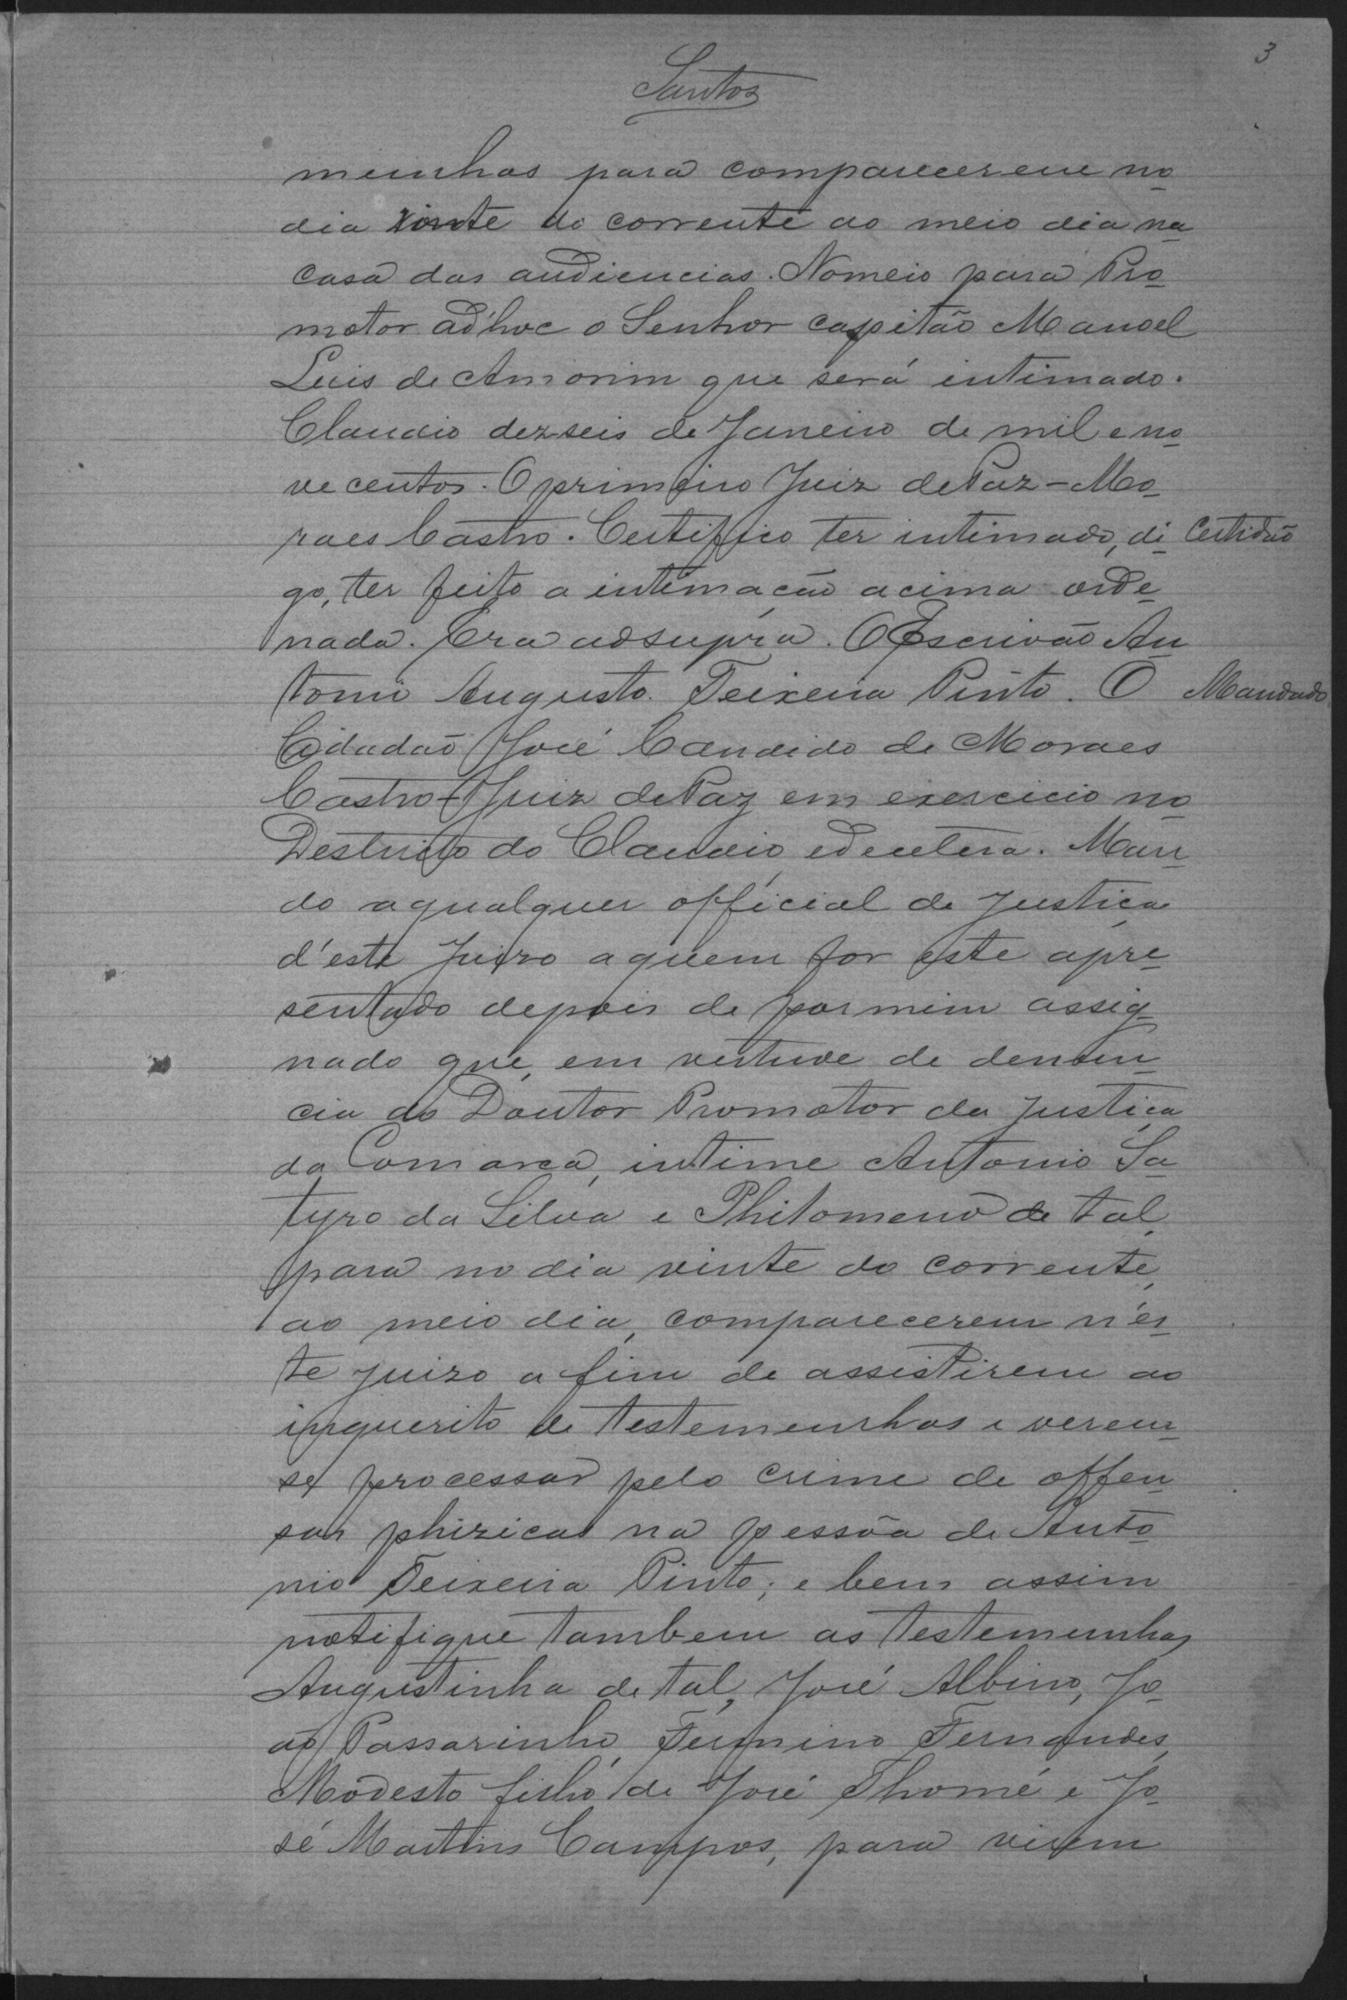 3
Santos
munhas para comparecerem no
dia vinte do corrente ao meio dia na
casa das audiencias. Nomeio para Pro
motor ad'hoc o Senhor capitão Manoel
Luis de Amorim que será intimado.
Claudio dezseis de Janeiro de mil e no
vecentos. O primeiro Juiz de Paz - Mo
raes Castro. Certifico ter intimado, di Certidão
go, ter feito a intimação acima orde
nada. Era ut supra. O Escrivão An
tonio Augusto Teixeira Pinto. O Mandado
Cidadão José Candido de Moraes
Castro Juiz de Paz em exercicio no
Destricto do Claudio etcetera. Man
do a qualquer official de justiça
d'este Juizo a quem for este apre
sentado depois de por mim assig
nado que, em vertude de denun
cia do Doutor Promotor da justiça
da Comarca, intime Antonio Sa
tyro da Silva e Philomeno de tal,
para no dia vinte do corrente,
ao meio dia, comparecerem n'es
te juizo a fim de assistirem ao
inquerito de testemunhas e verem
se processar pelo crime de offen
sas phizicas na pessôa de Anto
nio Teixeira Pinto; e bem assim
notifique tambem as testemunhas
Augustinha de tal, José Albino, Jo
ão Passarinho, Fermino Fernandes,
Modesto filho de José Thomé e Jo
sé Martins Campos, para virem